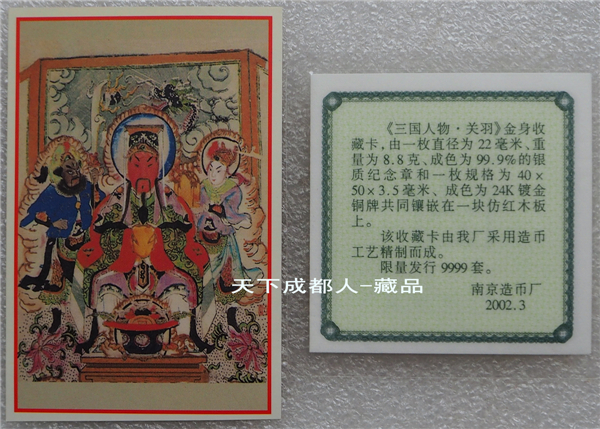 《三国人物·关羽》金身收
藏卡,由一枚直径为22毫米、重
量为8.8克、成色为99.9%的银
质纪念章和一枚规格为40×
50×3.5毫米、成色为24K镀金
铜牌共同镶嵌在一块仿红木板
上。
该收藏卡由我厂采用造币
工艺精制而成。
限量发行9999套。
南京造币厂
2002.3
天下成都人-藏品